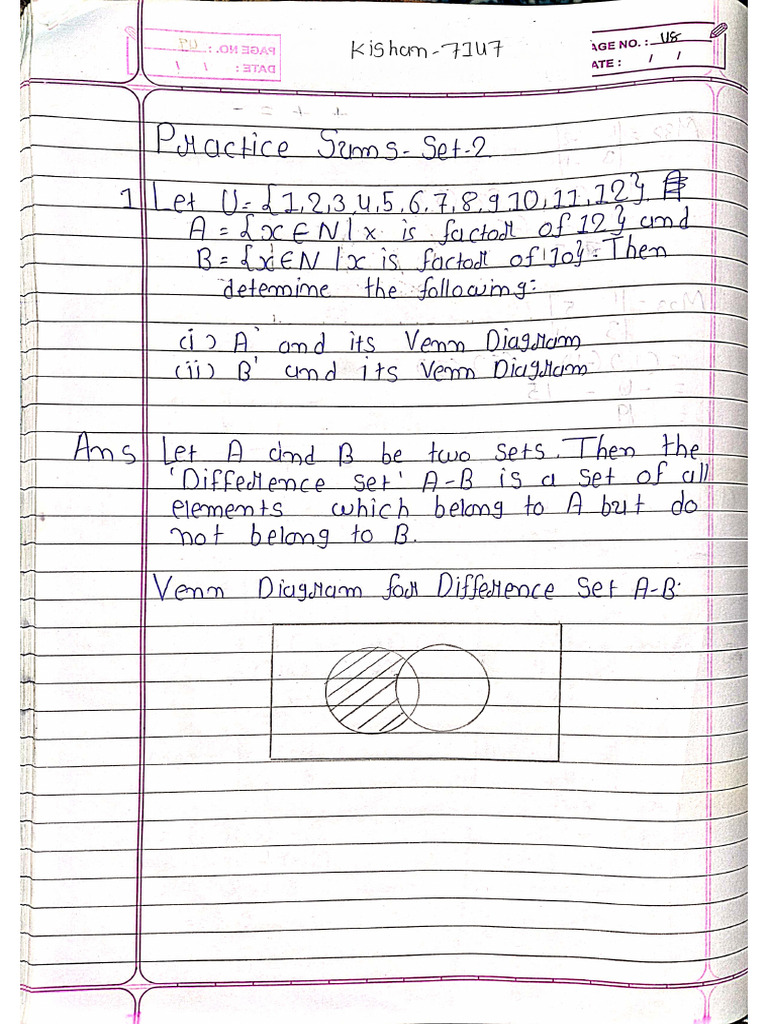 Kishan-7147
PAGE NO.: 48
DATE: / /
Practice Sums-Set-2
1 Let U={1,2,3,4,5,6,7,8,9 10,11,12},
A = {x∈N|x is factor of 12} and
B = {x∈N|x is factor of 10}. Then
detemine the following:
(i) A' and its Venn Diagram
(ii) B' and its Venn Diagram
Ans Let A and B be two sets. Then the
'Difference set' A-B is a set of all
elements which belong to A but do
not belong to B.
Venn Diagram for Difference Set A-B: